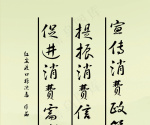 宣传消费政策
提振消费信
促进消费需
作品